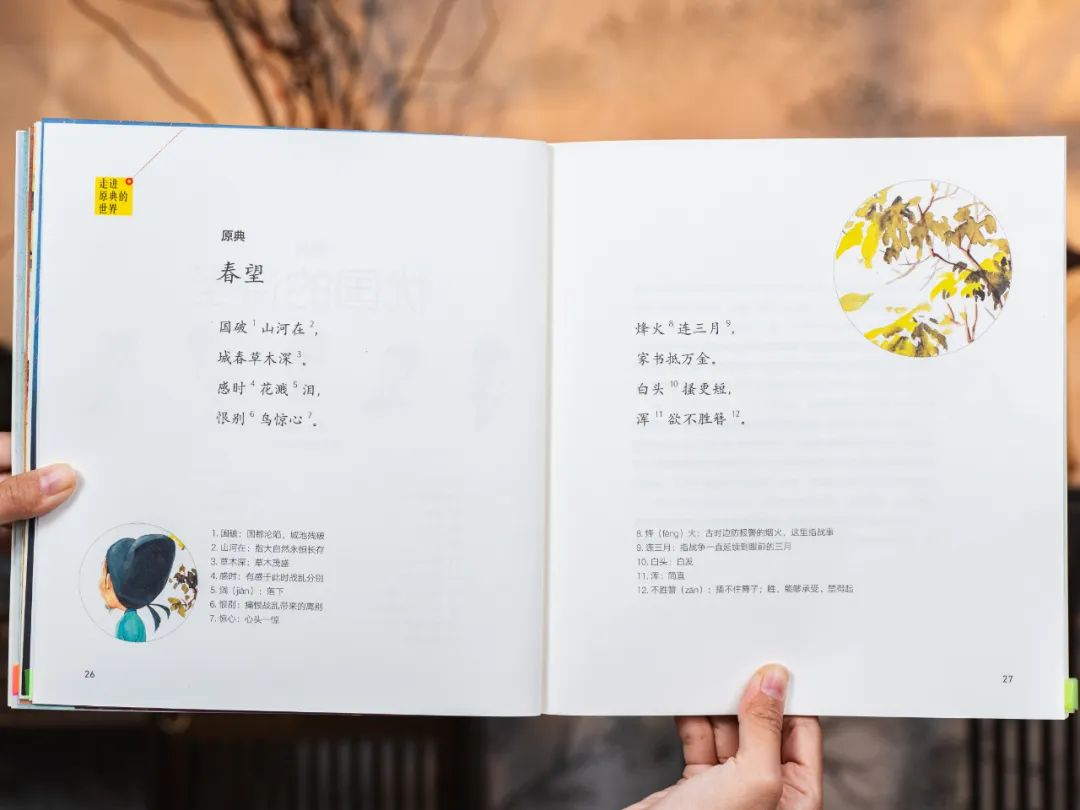 走进
原典的
世界
原典
春望
国破1山河在2，
城春草木深3。
感时4花溅5泪，
恨别6鸟惊心7。
1. 国破：国都沦陷，城池残破
2. 山河在：指大自然永恒长存
3. 草木深：草木茂盛
4. 感时：有感于此时战乱分别
5. 溅（jiàn）：落下
6. 恨别：痛恨战乱带来的离别
7. 惊心：心头一惊
26
烽火8连三月9，
家书抵万金。
白头10搔更短，
浑11欲不胜簪12。
8. 烽（fēng）火：古时边防报警的烟火，这里指战事
9. 连三月：指战争一直延续到眼前的三月
10. 白头：白发
11. 浑：简直
12. 不胜簪（zān）：插不住簪子；胜，能够承受、禁得起
27